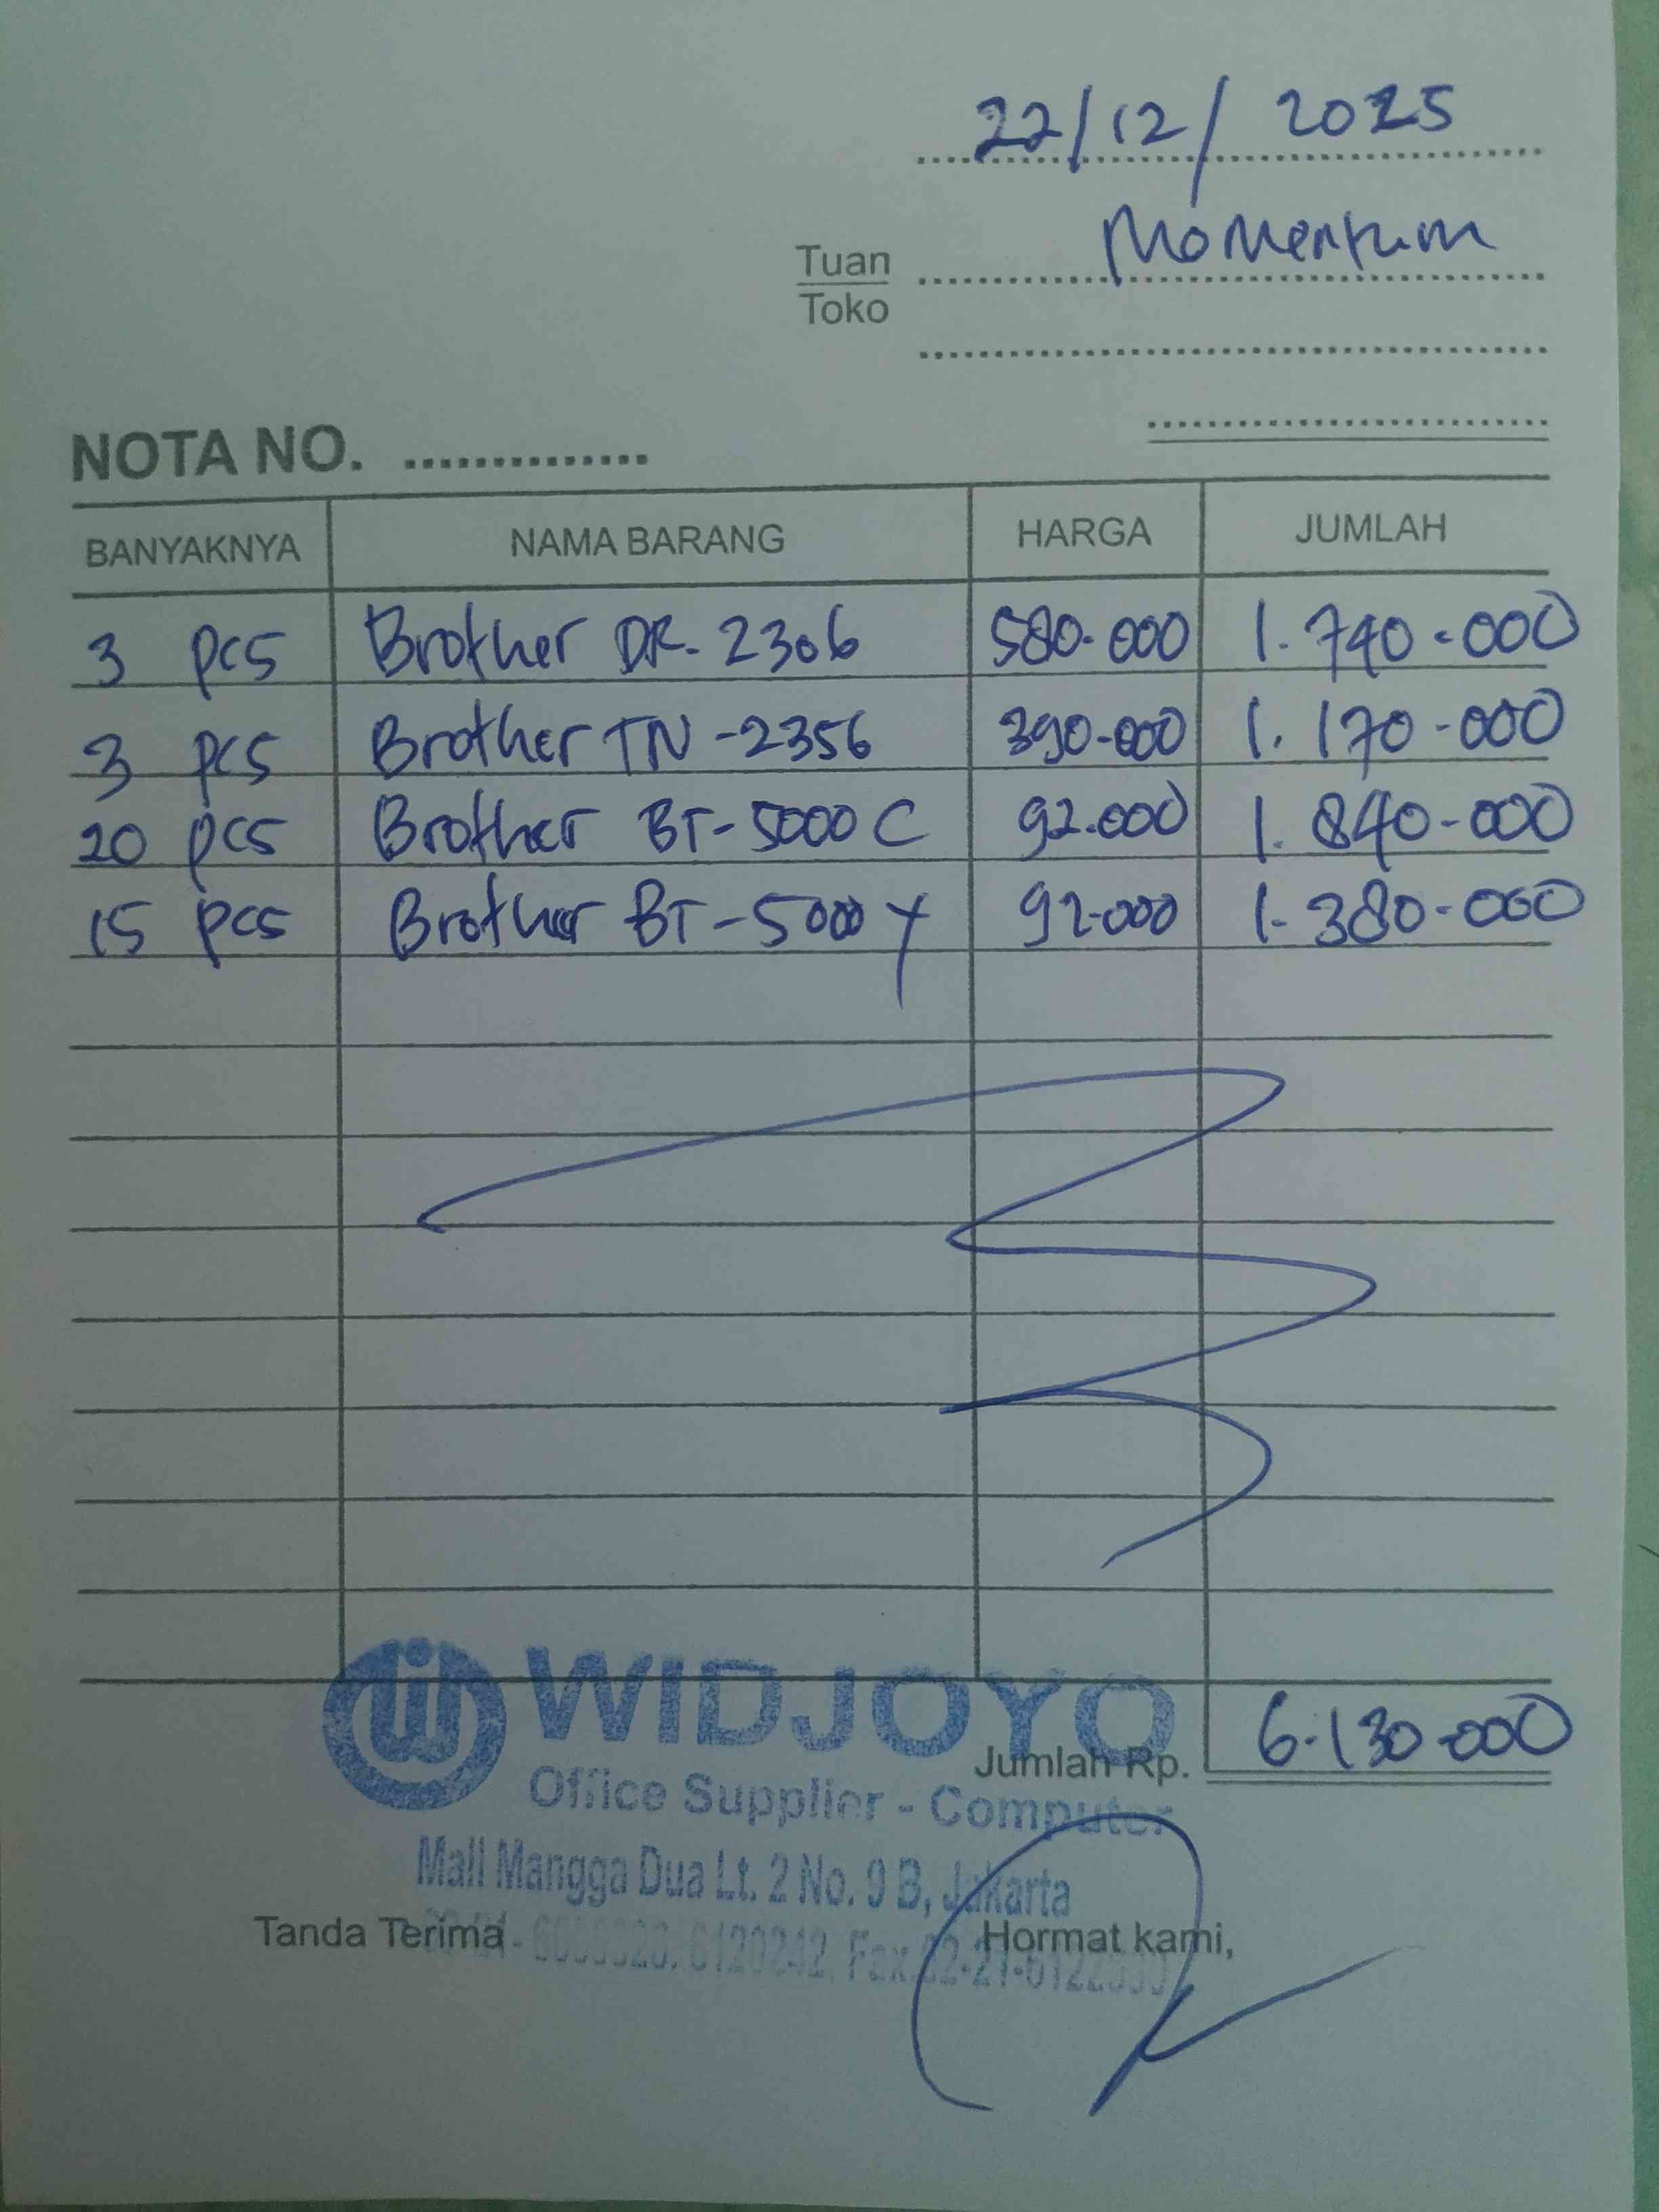 22/12/2025
Momentum
Tuan
Toko
NOTA NO. ..............
BANYAKNYA NAMA BARANG HARGA JUMLAH
3 pcs Brother DR-2306 580.000 1.740.000
3 pcs Brother TN-2356 390.000 1.170.000
20 pcs Brother BT-5000 C 92.000 1.840.000
15 pcs Brother BT-5000 Y 92.000 1.380.000
WIDJOYO
Jumlah Rp. 6.130.000
Office Supplier - Computer
Mall Mangga Dua Lt. 2 No. 9 B, Jakarta
Tanda Terima Hormat kami,
6120242, Fax